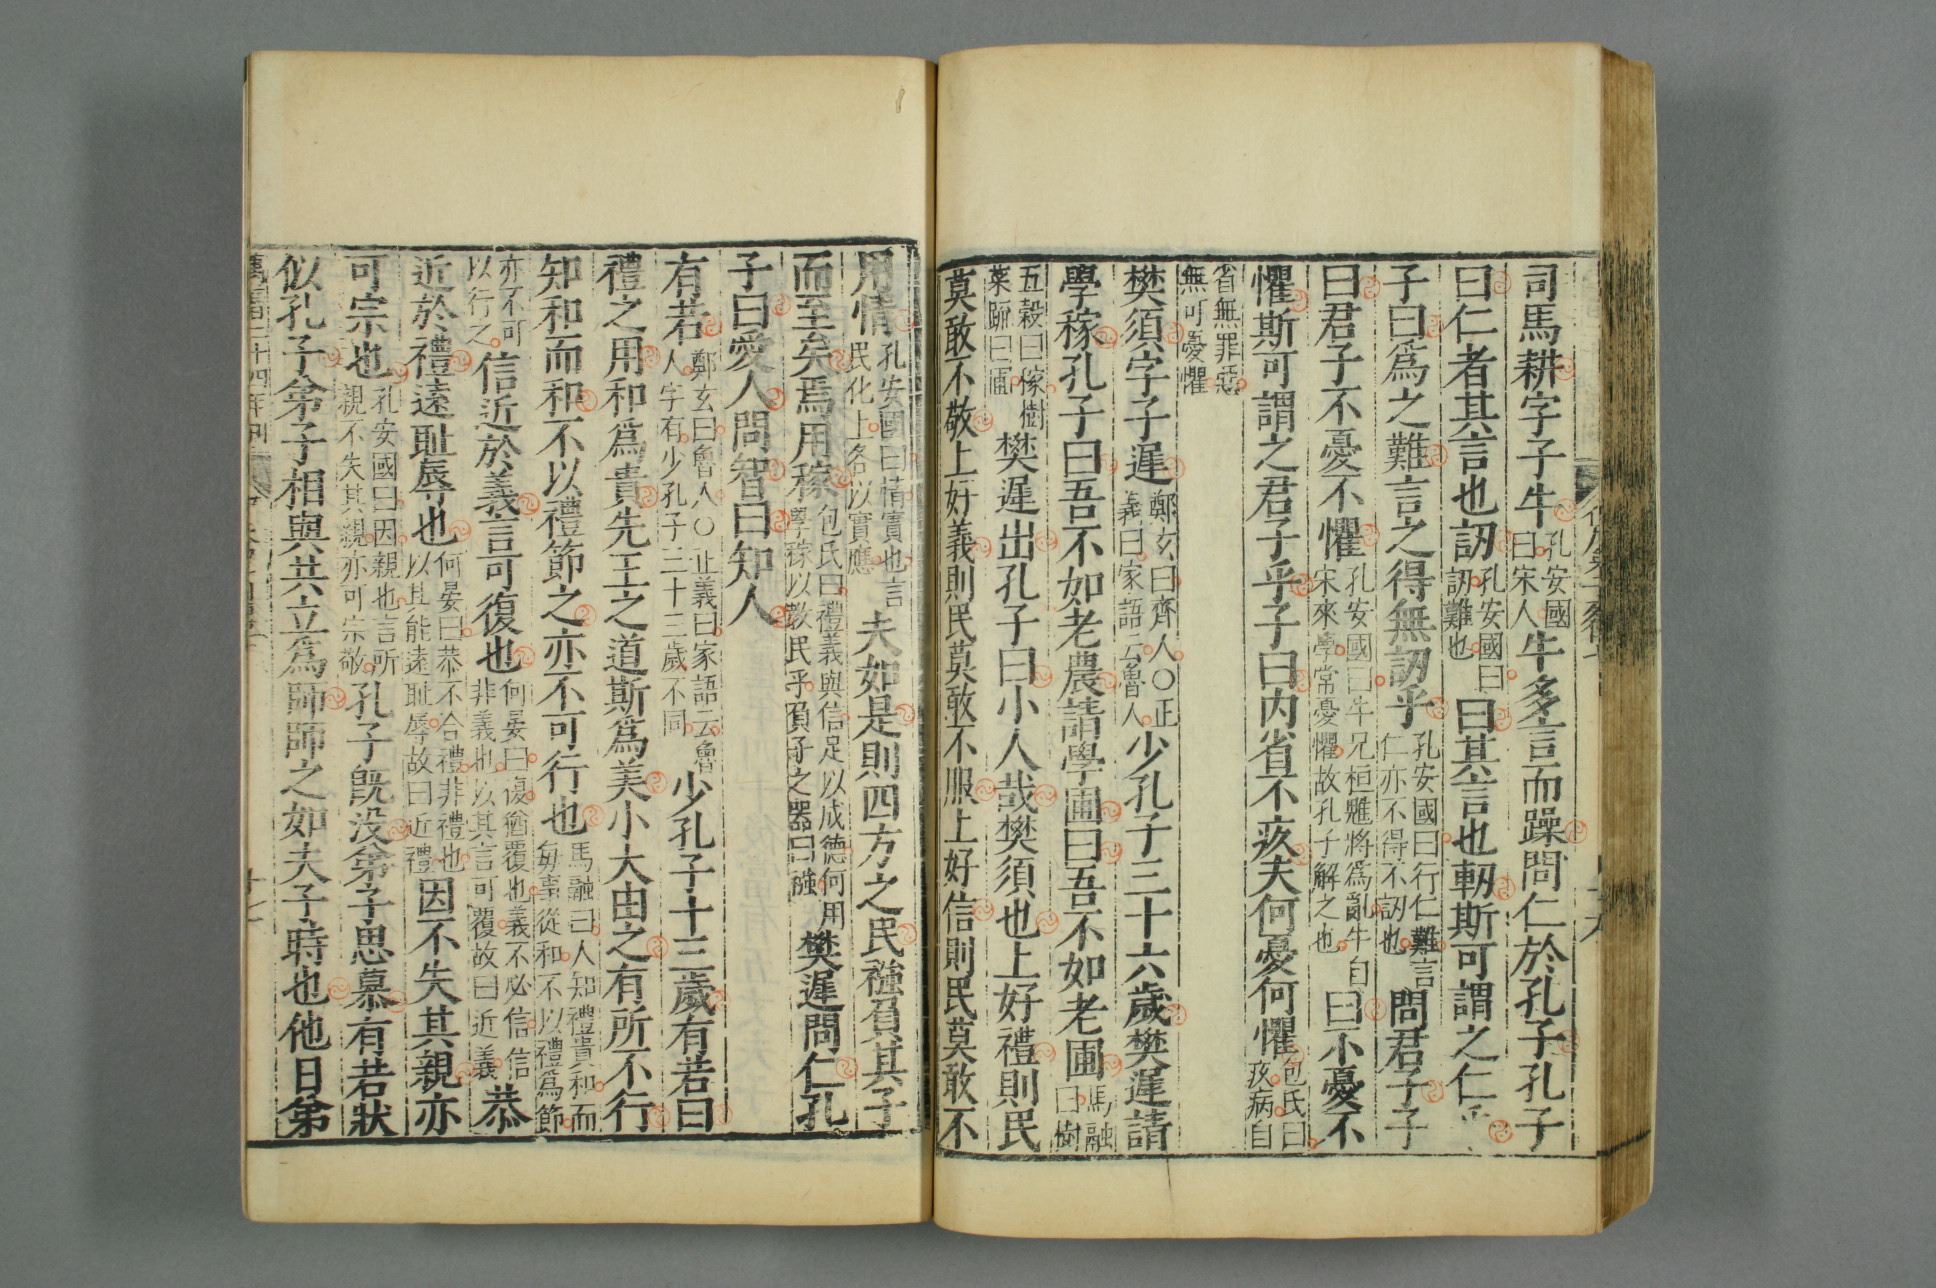 司馬耕字子牛孔安國曰宋人牛多言而躁問仁於孔子孔子
曰仁者其言也訒孔安國曰訒難也曰其言也訒斯可謂之仁乎
子曰爲之難言之得無訒乎孔安國曰行仁難言仁亦不得不訒也問君子子
曰君子不憂不懼孔安國曰牛兄桓魋將爲亂牛自宋來學常憂懼故孔子解之也曰不憂不
懼斯可謂之君子乎子曰內省不疚夫何憂何懼包氏曰疚病自
省無罪惡無可憂懼
樊須字子遲鄭玄曰齊人〇正義曰家語云魯人少孔子三十六歲樊遲請
學稼孔子曰吾不如老農請學圃曰吾不如老圃馬融曰樹
五穀曰稼樹菜蔬曰圃樊遲出孔子曰小人哉樊須也上好禮則民
莫敢不敬上好義則民莫敢不服上好信則民莫敢不
用情孔安國曰情實也言民化上各以實應夫如是則四方之民襁負其子
而至矣焉用稼包氏曰禮義與信足以成德何用學稼以敎民乎負子之器曰襁樊遲問仁孔
子曰愛人問智曰知人
有若鄭玄曰魯人〇正義曰家語云魯人字有少孔子三十三歲不同少孔子十三歲有若曰
禮之用和爲貴先王之道斯爲美小大由之有所不行
知和而和不以禮節之亦不可行也馬融曰人知禮貴和而每事從和不以禮爲節
亦不可以行之信近於義言可復也何晏曰復猶覆也義不必信信非義也以其言可覆故曰近義恭
近於禮遠耻辱也何晏曰恭不合禮非禮也以其能遠耻辱故曰近禮因不失其親亦
可宗也孔安國曰因親也言所親不失其親亦可宗敬孔子旣没弟子思慕有若狀
似孔子弟子相與共立爲師師之如夫子時也他日弟
萬曆二十四年刊